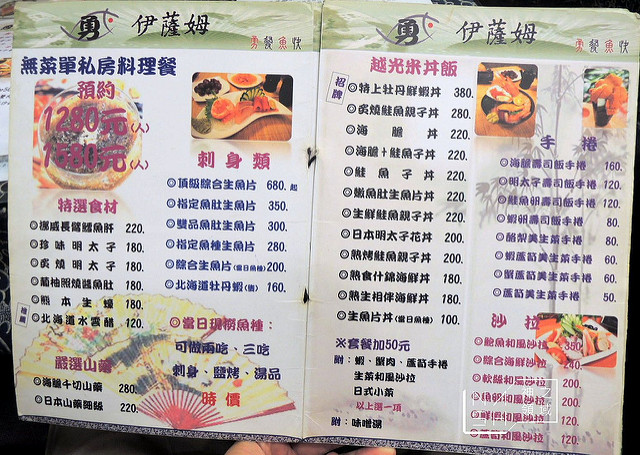 勇 伊薩姆
勇餐魚快
無菜單私房料理餐
預約
1280元(人)
1680元(人)
特選食材
◎挪威長鱈鱈魚肝 220.
◎珍味明太子 180.
◎炙燒明太子 180.
◎葡柚照燒醬魚肚 180.
◎熊本生蠔 180.
推薦
◎北海道水雲醋 120.
嚴選山藥
◎海膽千切山藥 280.
◎日本山藥細絲 220.
刺身類
◎頂級綜合生魚片 680.起
◎指定魚肚生魚片 350.
◎雙品魚肚生魚片 300.
◎指定魚種生魚片 280.
◎綜合生魚片(當日魚種) 200.
◎北海道牡丹蝦(週) 160.
◎當日現撈魚種：
可做兩吃、三吃
刺身、鹽烤、湯品
時價
勇 伊薩姆
勇餐魚快
越光米丼飯
招牌
◎特上牡丹鮮蝦丼 380.
◎炙燒鮭魚親子丼 280.
◎海膽丼 220.
◎海膽+鮭魚子丼 220.
◎鮭魚子丼 220.
◎嫩魚肚生魚片丼 220.
◎生鮮鮭魚親子丼 220.
◎日本明太子花丼 200.
◎熟烤鮭魚親子丼 200.
◎熟食什錦海鮮丼 180.
◎熟生相伴海鮮丼 180.
◎生魚片丼(當日魚種) 100.
※套餐加50元
附：蝦、蟹肉、蘆筍手捲
生菜和風沙拉
日式小菜
以上選一項
附：味噌湯
手捲
◎海膽壽司飯手捲 160.
◎明太子壽司飯手捲 120.
◎鮭魚卵壽司飯手捲 120.
◎蝦卵壽司飯手捲 80.
◎酪梨美生菜手捲 80.
◎蝦蘆筍美生菜手捲 60.
◎蟹蘆筍美生菜手捲 60.
◎蘆筍美生菜手捲 50.
沙拉
◎鮑魚和風沙拉 350.
◎綜合海鮮沙拉 240.
◎軟絲和風沙拉 200.
◎魚卵和風沙拉 200.
◎鮮蝦和風沙拉 120.
◎蘆筍和風沙拉 120.